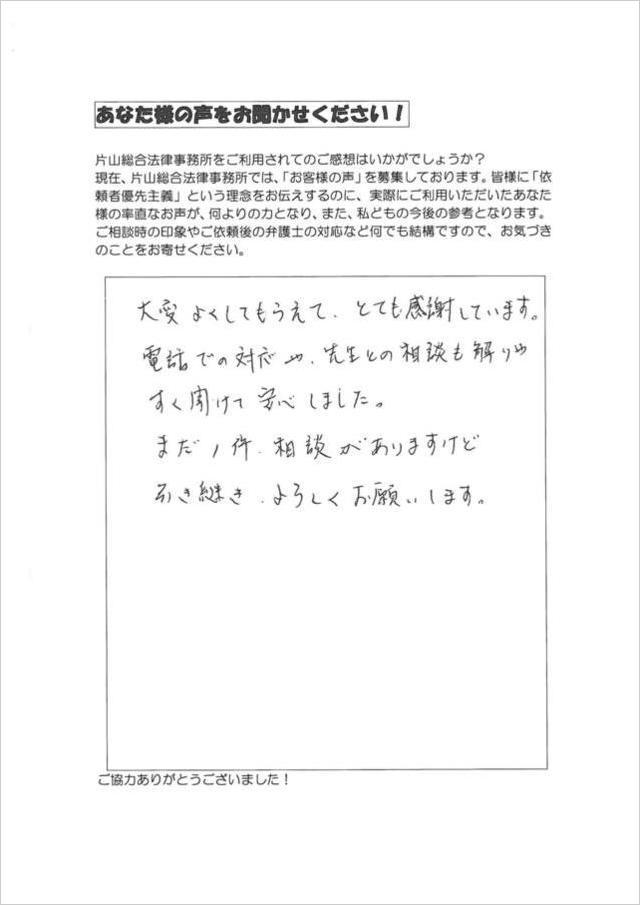 あなた様の声をお聞かせください！
片山総合法律事務所をご利用されてのご感想はいかがでしょうか？
現在、片山総合法律事務所では、「お客様の声」を募集しております。皆様に「依
頼者優先主義」という理念をお伝えするのに、実際にご利用いただいたあなた
様の率直なお声が、何よりの力となり、また、私どもの今後の参考となります。
ご相談時の印象やご依頼後の弁護士の対応など何でも結構ですので、お気づき
のことをお寄せください。
大変よくしてもらえて、とても感謝しています。
電話での対応や、先生との相談も解りや
すく聞けて安心しました。
まだ1件、相談がありますけど
引き継き、よろしくお願いします。
ご協力ありがとうございました！